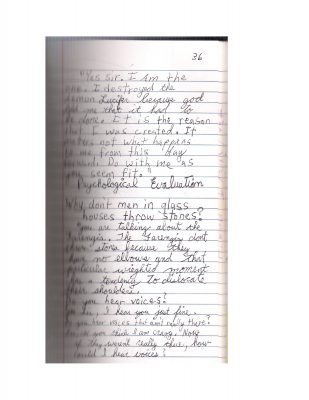 36
"Yes sir. I am the
one. I destroyed the
demon Lucifer because god
told me that it had to
be done. It is the reason
that I was created. It
matters not what happens
to me from this day
forward. Do with me as
you seem fit."
Psychological Evaluation
Why dont men in glass
houses throw stones?
"You are talking about the
The dont
stones because they
have no elbows and that
particular weighted moment
has a tendency to dislocate
their shoulders.
Do you hear voices?
I hear you just fine.
Do you hear voices that aint really there?
you think I am crazy. Now
if they werent really there, how
could I hear voices?